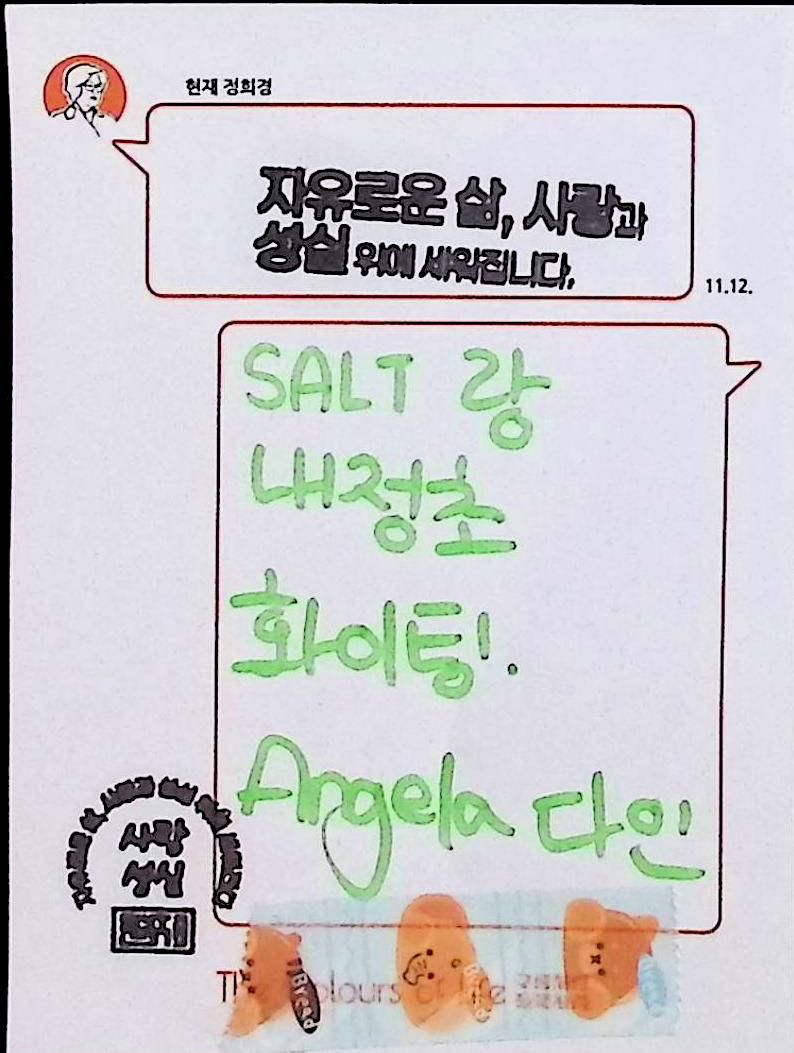 현재 정희경
자유로운 삶, 사랑과
성실 위에 세워집니다.
11.12.
SALT 랑
내정초
화이팅!.
Angela 다인
사랑
성실
Bread
of Life